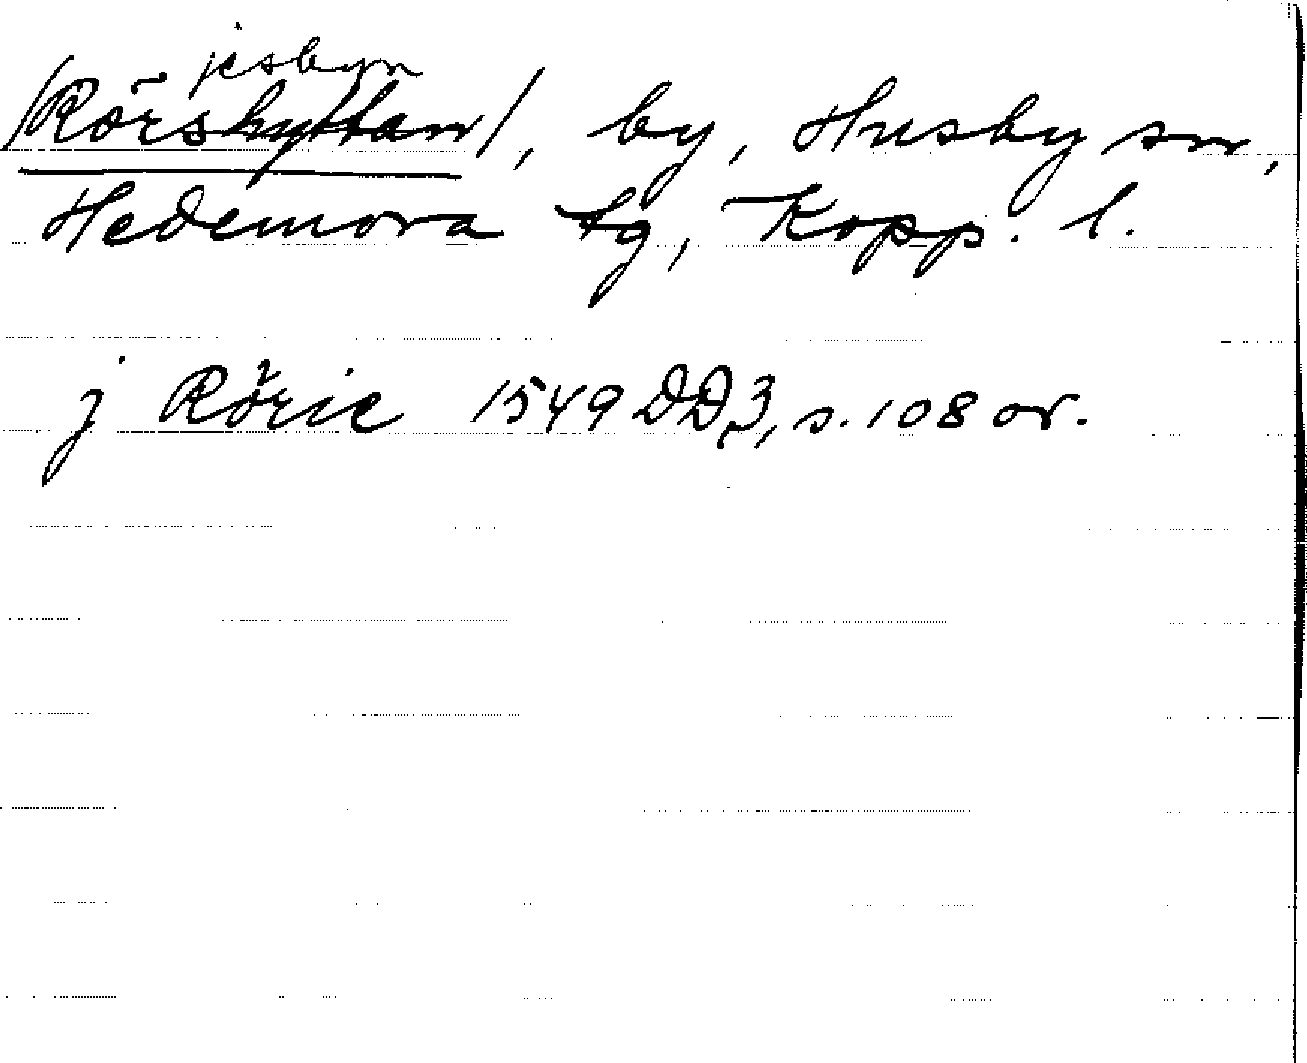 jesbyn
/Rörshyttan/, by, Husby sn,
Hedemora tg, Kopp. l.
j Rörie 1549 DD3, s. 108 or.